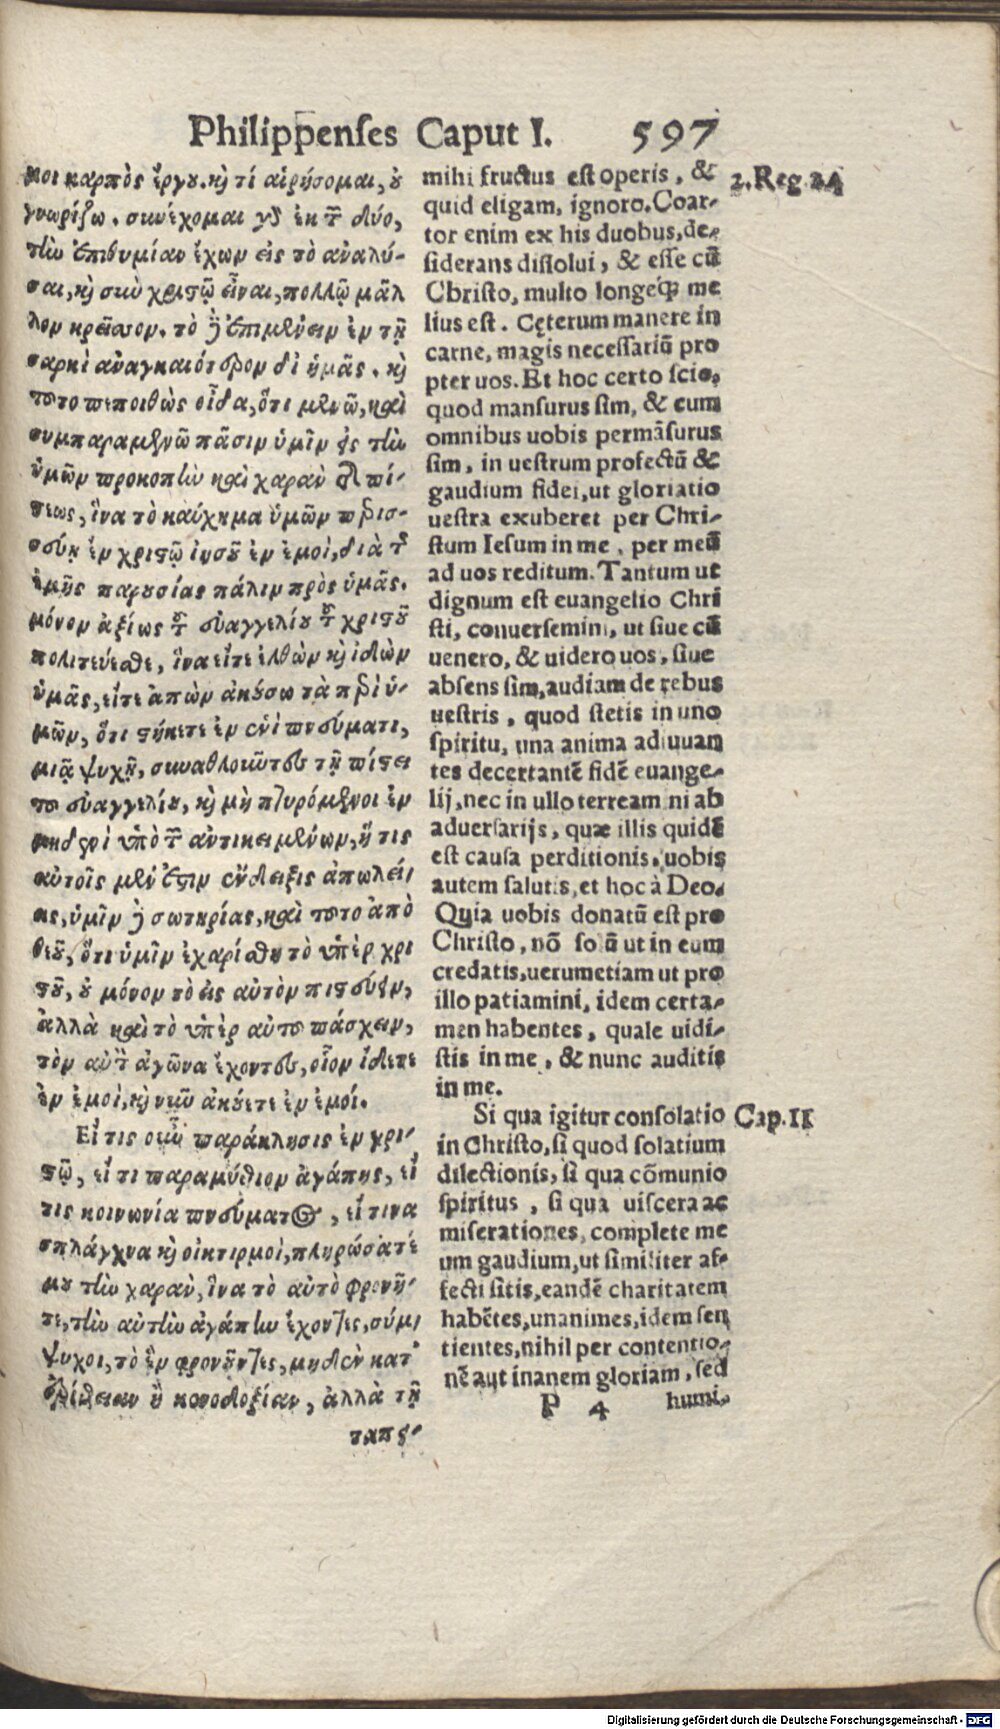 Philippenses Caput I. 597
μοι καρπὸς ἔργου. κ τί αἱρήσομαι, ȣ
γνωρίζω. συνέχομαι γδ ἐκ τ δύο,
τὴν ἐπιθυμίαν ἔχων εἰς τὸ ἀναλύ-
σαι, κ σὺν χριστῷ εἶναι, πολλῷ μᾶλ
λον κρεῖσσον. τὸ δ ἐπιμένειν ἐν τῇ
σαρκὶ ἀναγκαιότερον δι ὑμᾶς. κ
τοτο πεποιθὼς οἶδα, ὅτι μενῶ, καὶ
συμπαραμενῶ πᾶσιν ὑμῖν εἰς τὴν
ὑμῶν προκοπὴν καὶ χαρὰν τ πί-
στεως, ἵνα τὸ καύχημα ὑμῶν περισ-
σεύῃ ἐν χριστῷ ἰησοῦ ἐν ἐμοὶ, διὰ τ
ἐμῆς παρουσίας πάλιν πρὸς ὑμᾶς.
μόνον ἀξίως τ εὐαγγελίου τ χριστοῦ
πολιτεύεσθε, ἵνα εἴτε ἐλθὼν κ ἰδὼν
ὑμᾶς, εἴτε ἀπὼν ἀκούσω τὰ περὶ ὑ-
μῶν, ὅτι στήκετε ἐν ἑνὶ πνεύματι,
μιᾷ ψυχῇ, συναθλοῦντες τῇ πίστει
το εὐαγγελίου, κ μὴ πτυρόμενοι ἐν
μηδενὶ ὑπὸ τ ἀντικειμένων, ἥτις
αὐτοῖς μέν ἐστιν ἔνδειξις ἀπωλεί-
ας, ὑμῖν δ σωτηρίας, καὶ τοτο ἀπὸ
θεοῦ, ὅτι ὑμῖν ἐχαρίσθη τὸ ὑπὲρ χρι
στοῦ, ȣ μόνον τὸ εἰς αὐτὸν πιστεύειν,
ἀλλὰ καὶ τὸ ὑπὲρ αὐτο πάσχειν,
τὸν αὐτ ἀγῶνα ἔχοντες, οἷον ἴδετε
ἐν ἐμοὶ, κ νῦν ἀκούετε ἐν ἐμοί.
Εἴ τις οὖν παράκλησις ἐν χρι-
στῷ, εἴ τι παραμύθιον ἀγάπης, εἴ
τις κοινωνία πνεύματος, εἴ τινα
σπλάγχνα κ οἰκτιρμοὶ, πληρώσατέ
μου τὴν χαρὰν, ἵνα τὸ αὐτὸ φρονῆ-
τε, τὴν αὐτὴν ἀγάπην ἔχοντες, σύμ-
ψυχοι, τὸ ἓν φρονοῦντες, μηδὲν κατ'
ἐρίθειαν ἢ κενοδοξίαν, ἀλλὰ τῇ
ταπει-
mihi fructus est operis, &
quid eligam, ignoro. Coar-
tor enim ex his duobus, de-
siderans dissolui, & esse cũ
Christo, multo longeq́ꝫ me
lius est. Cęterum manere in
carne, magis necessariũ pro
pter uos. Et hoc certo scio,
quod mansurus sim, & cum
omnibus uobis permãsurus
sim, in uestrum profectũ &
gaudium fidei, ut gloriatio
uestra exuberet per Chri-
stum Iesum in me, per meũ
ad uos reditum. Tantum ut
dignum est euangelio Chri
sti, conuersemini, ut siue cũ
uenero, & uidero uos, siue
absens sim, audiam de rebus
uestris, quod stetis in uno
spiritu, una anima adiuuan
tes decertantẽ fidẽ euange-
lij, nec in ullo terreamini ab
aduersarijs, quæ illis quidẽ
est causa perditionis, uobis
autem salutis, et hoc à Deo.
Quia uobis donatũ est pro
Christo, nõ solũ ut in eum
credatis, uerumetiam ut pro
illo patiamini, idem certa-
men habentes, quale uidi-
stis in me, & nunc auditis
in me.
Si qua igitur consolatio
in Christo, si quod solatium
dilectionis, si qua cõmunio
spiritus, si qua uiscera ac
miserationes, complete me
um gaudium, ut similiter af-
fecti sitis, eandẽ charitatem
habẽtes, unanimes, idem sen
tientes, nihil per contentio-
nẽ aut inanem gloriam, sed
P 4 humi-
2. Reg 24
Cap. II
Digitalisierung gefördert durch die Deutsche Forschungsgemeinschaft - DFG